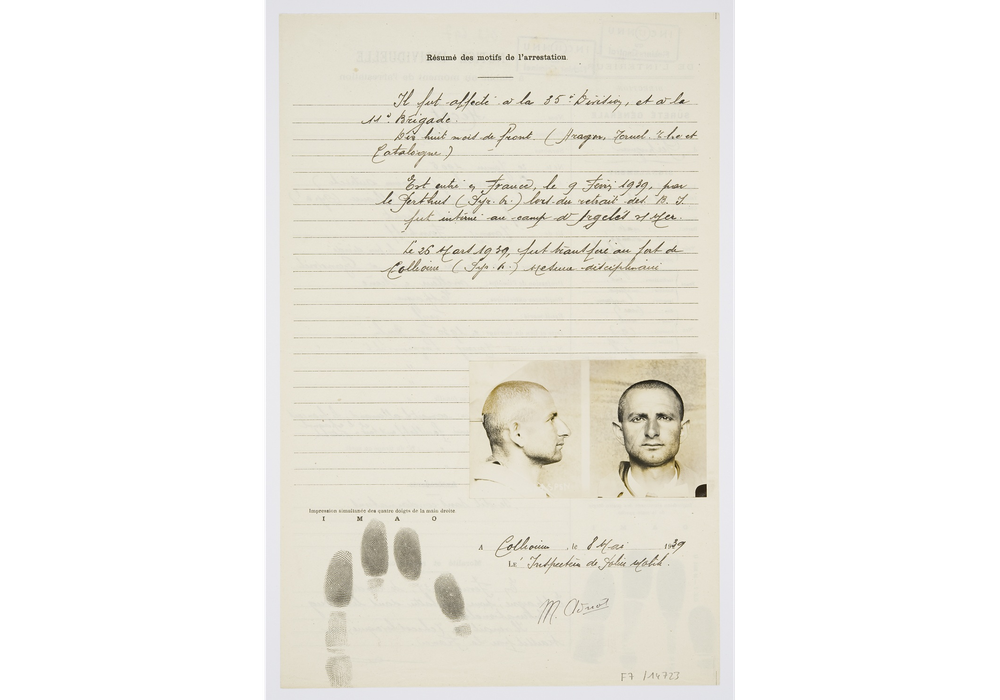 Résumé des motifs de l'arrestation.
Il fut affecté à la 35e Division, et à la
11e. Brigade.
Dix huit mois de front. (Aragon, Teruel. Ebro et
Catalogne.)
Est entré en France, le 9 1939, par
le Perthus ( ) lors du retrait des B. I.
fut interné au camp d'Argelès s/ Mer.
Le 26 Mart 1939, fut transféré au fort de
Collioure ( )
Impression simultanée des quatre doigts de la main droite
I M A O
A Collioure, le 8 Mai 1939
Le Inspecteur de Police Mobile.
F7 /14723